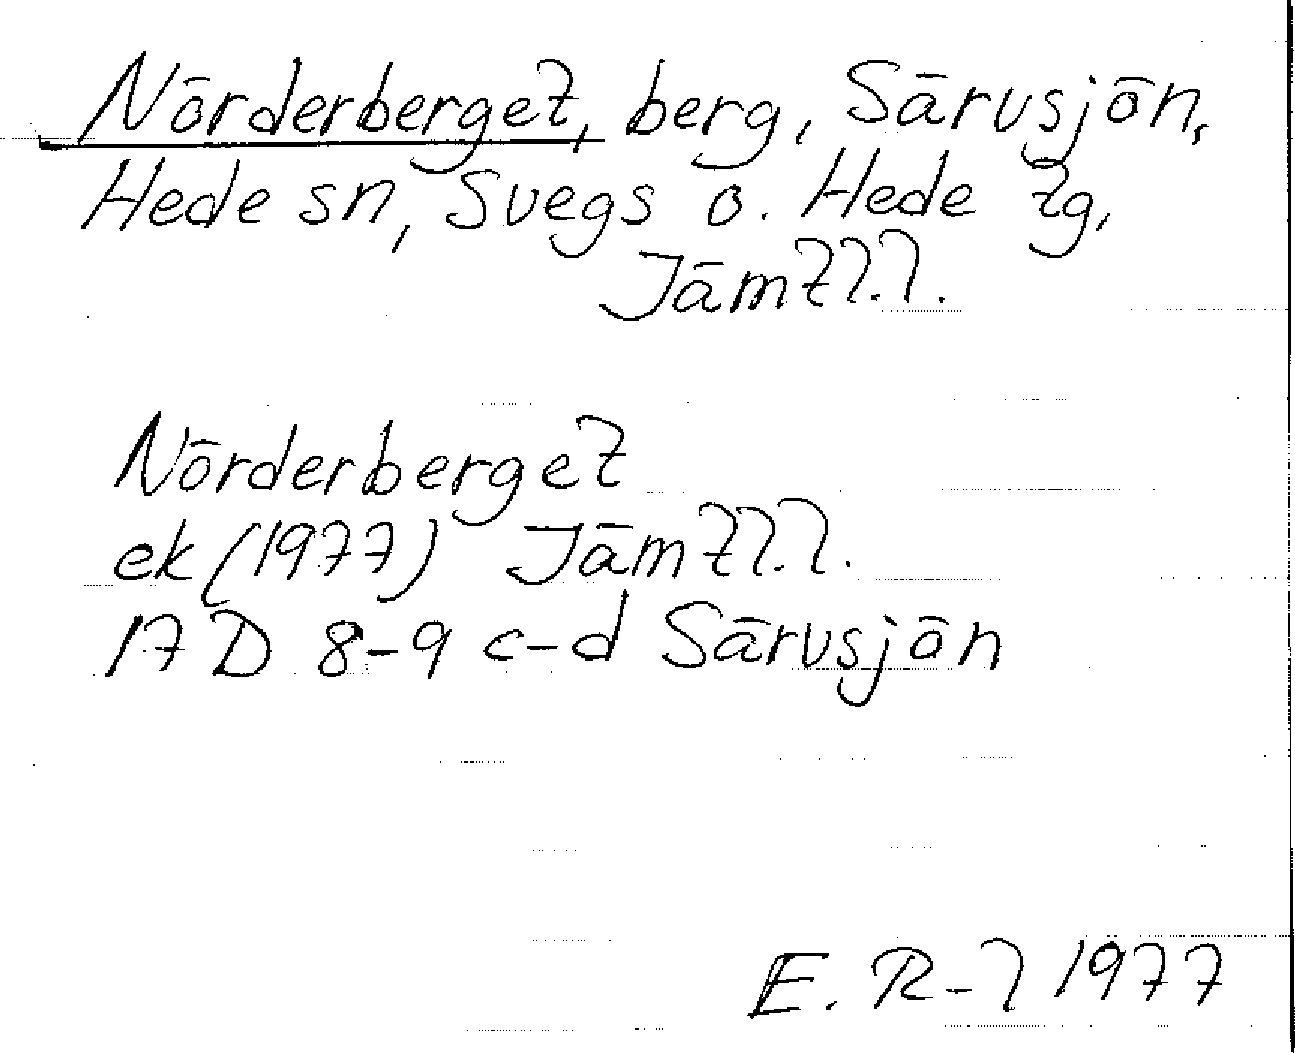 Nörderberget, berg, Särvsjön,
Hede sn, Svegs o. Hede tg,
Jämtl.l.
Nörderberget
ek (1977) Jämtl.l.
17 D 8-9 c-d Särvsjön
E. R-l 1977